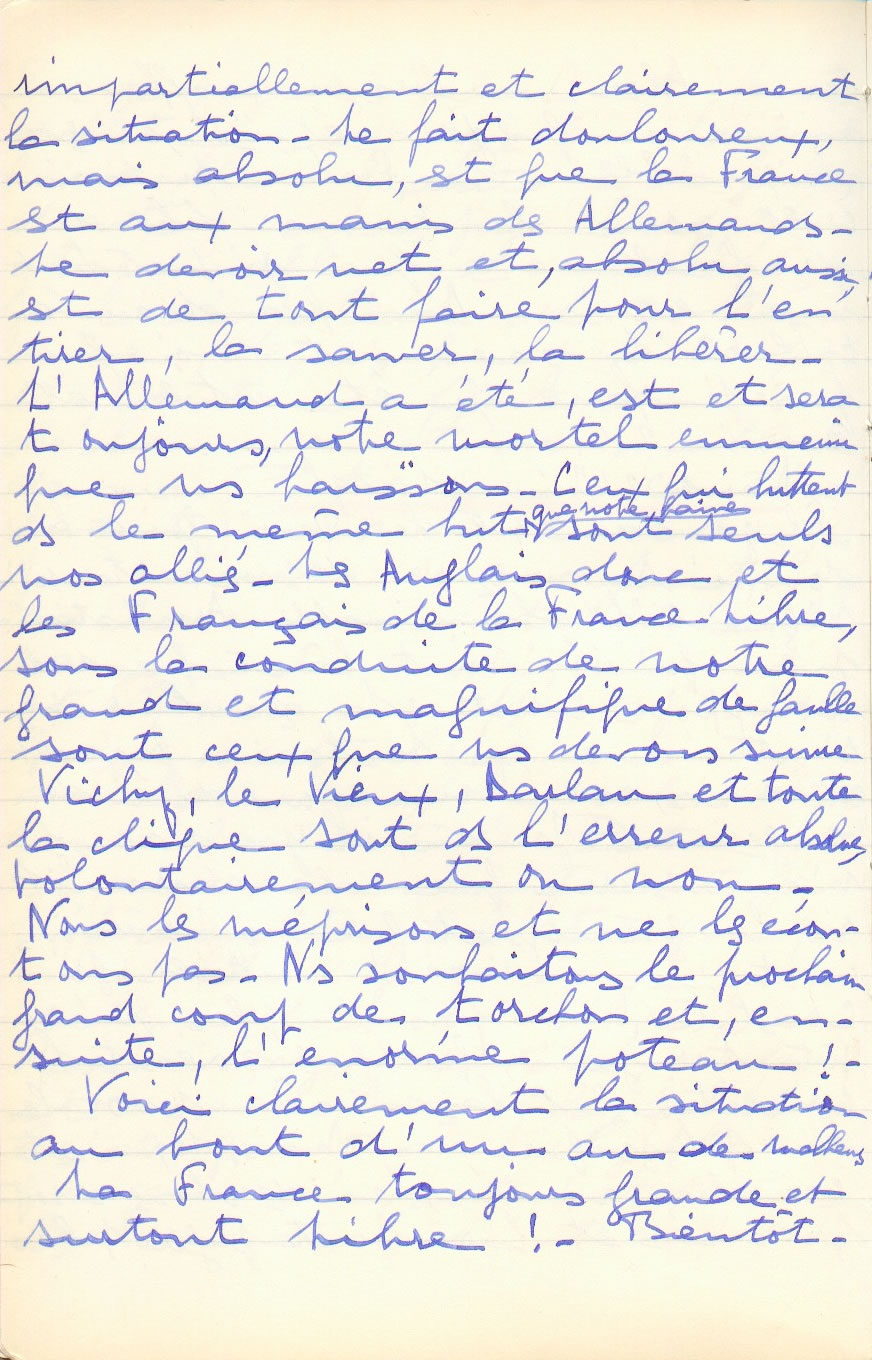 impartiellement et clairement
la situation - Le fait douloureux,
mais absolu, est que la France
est aux mains des Allemands -
Le devoir net et, absolu aussi,
est de tout faire pour l'en
tirer, la sauver, la libérer -
L'Allemand a été, est et sera
toujours, notre mortel ennemi
que ns haïssons - Ceux qui luttent
ds le même but que notre haine sont seuls
nos alliés - Les Anglais donc et
les Français de la France-Libre,
sous la conduite de notre
grand et magnifique de Gaulle
sont ceux que ns devons suivre
Vichy, le Vieux, Darlan et toute
la clique sont ds l'erreur absolue,
volontairement ou non -
Nous les méprisons et ne les écou-
tons pas - Ns souhaitons le prochain
grand coup de torchon et, en-
suite, l'énorme poteau ! -
Voici clairement la situation
au bout d'un an de malheurs
La France toujours grande et
surtout Libre ! - Bientôt -